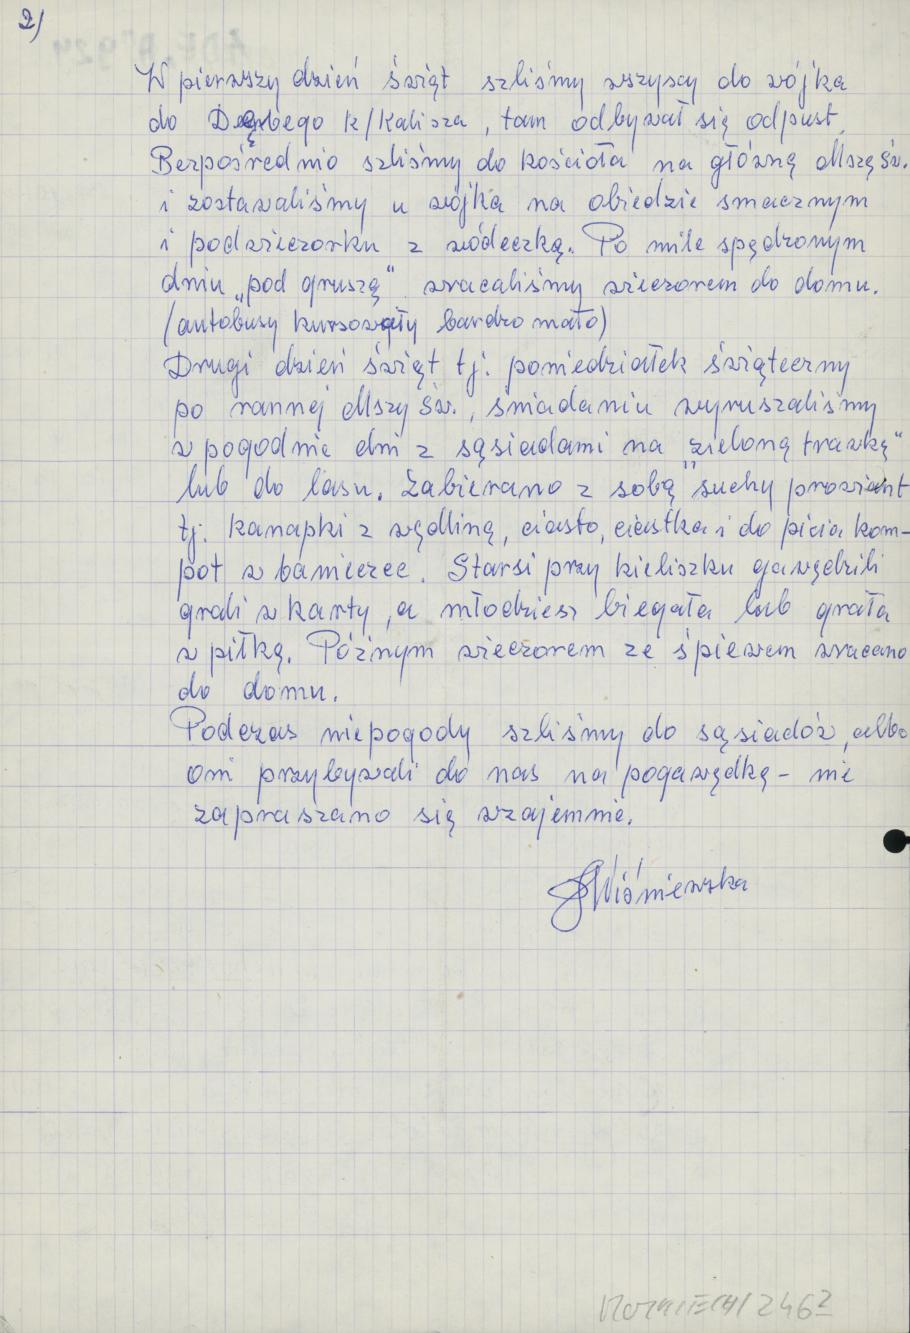 2)
W pierwszy dzień świąt szliśmy wszyscy do wójka
do Dębego k/Kalisza, tam odbywał się odpust.
Bezpośrednio szliśmy do kościoła na główną Mszę Św.
i zostawaliśmy u wójka na obiedzie smacznym
i podwieczorku z wódeczką. Po mile spędzonym
dniu „pod gruszą" wracaliśmy wieczorem do domu.
(autobusy kursowały bardzo mało)
Drugi dzień świąt tj. poniedziałek świąteczny
po rannej Mszy Św., śniadaniu wyruszaliśmy
w pogodnie dni z sąsiadami na „zieloną trawkę"
lub do lasu. Zabierano z sobą suchy prowiant
tj. kanapki z wędliną, ciasto, ciastka i do picia kom-
pot w bamierce. Starsi przy kieliszku gawędzili
grali w karty, a młodzież biegała lub grała
w piłkę. Późnym wieczorem ze śpiewem wracano
do domu.
Podczas niepogody szliśmy do sąsiadów, albo
oni przybywali do nas na pogawędkę - nie
zapraszano się wzajemnie.
Wiśniewska
2462